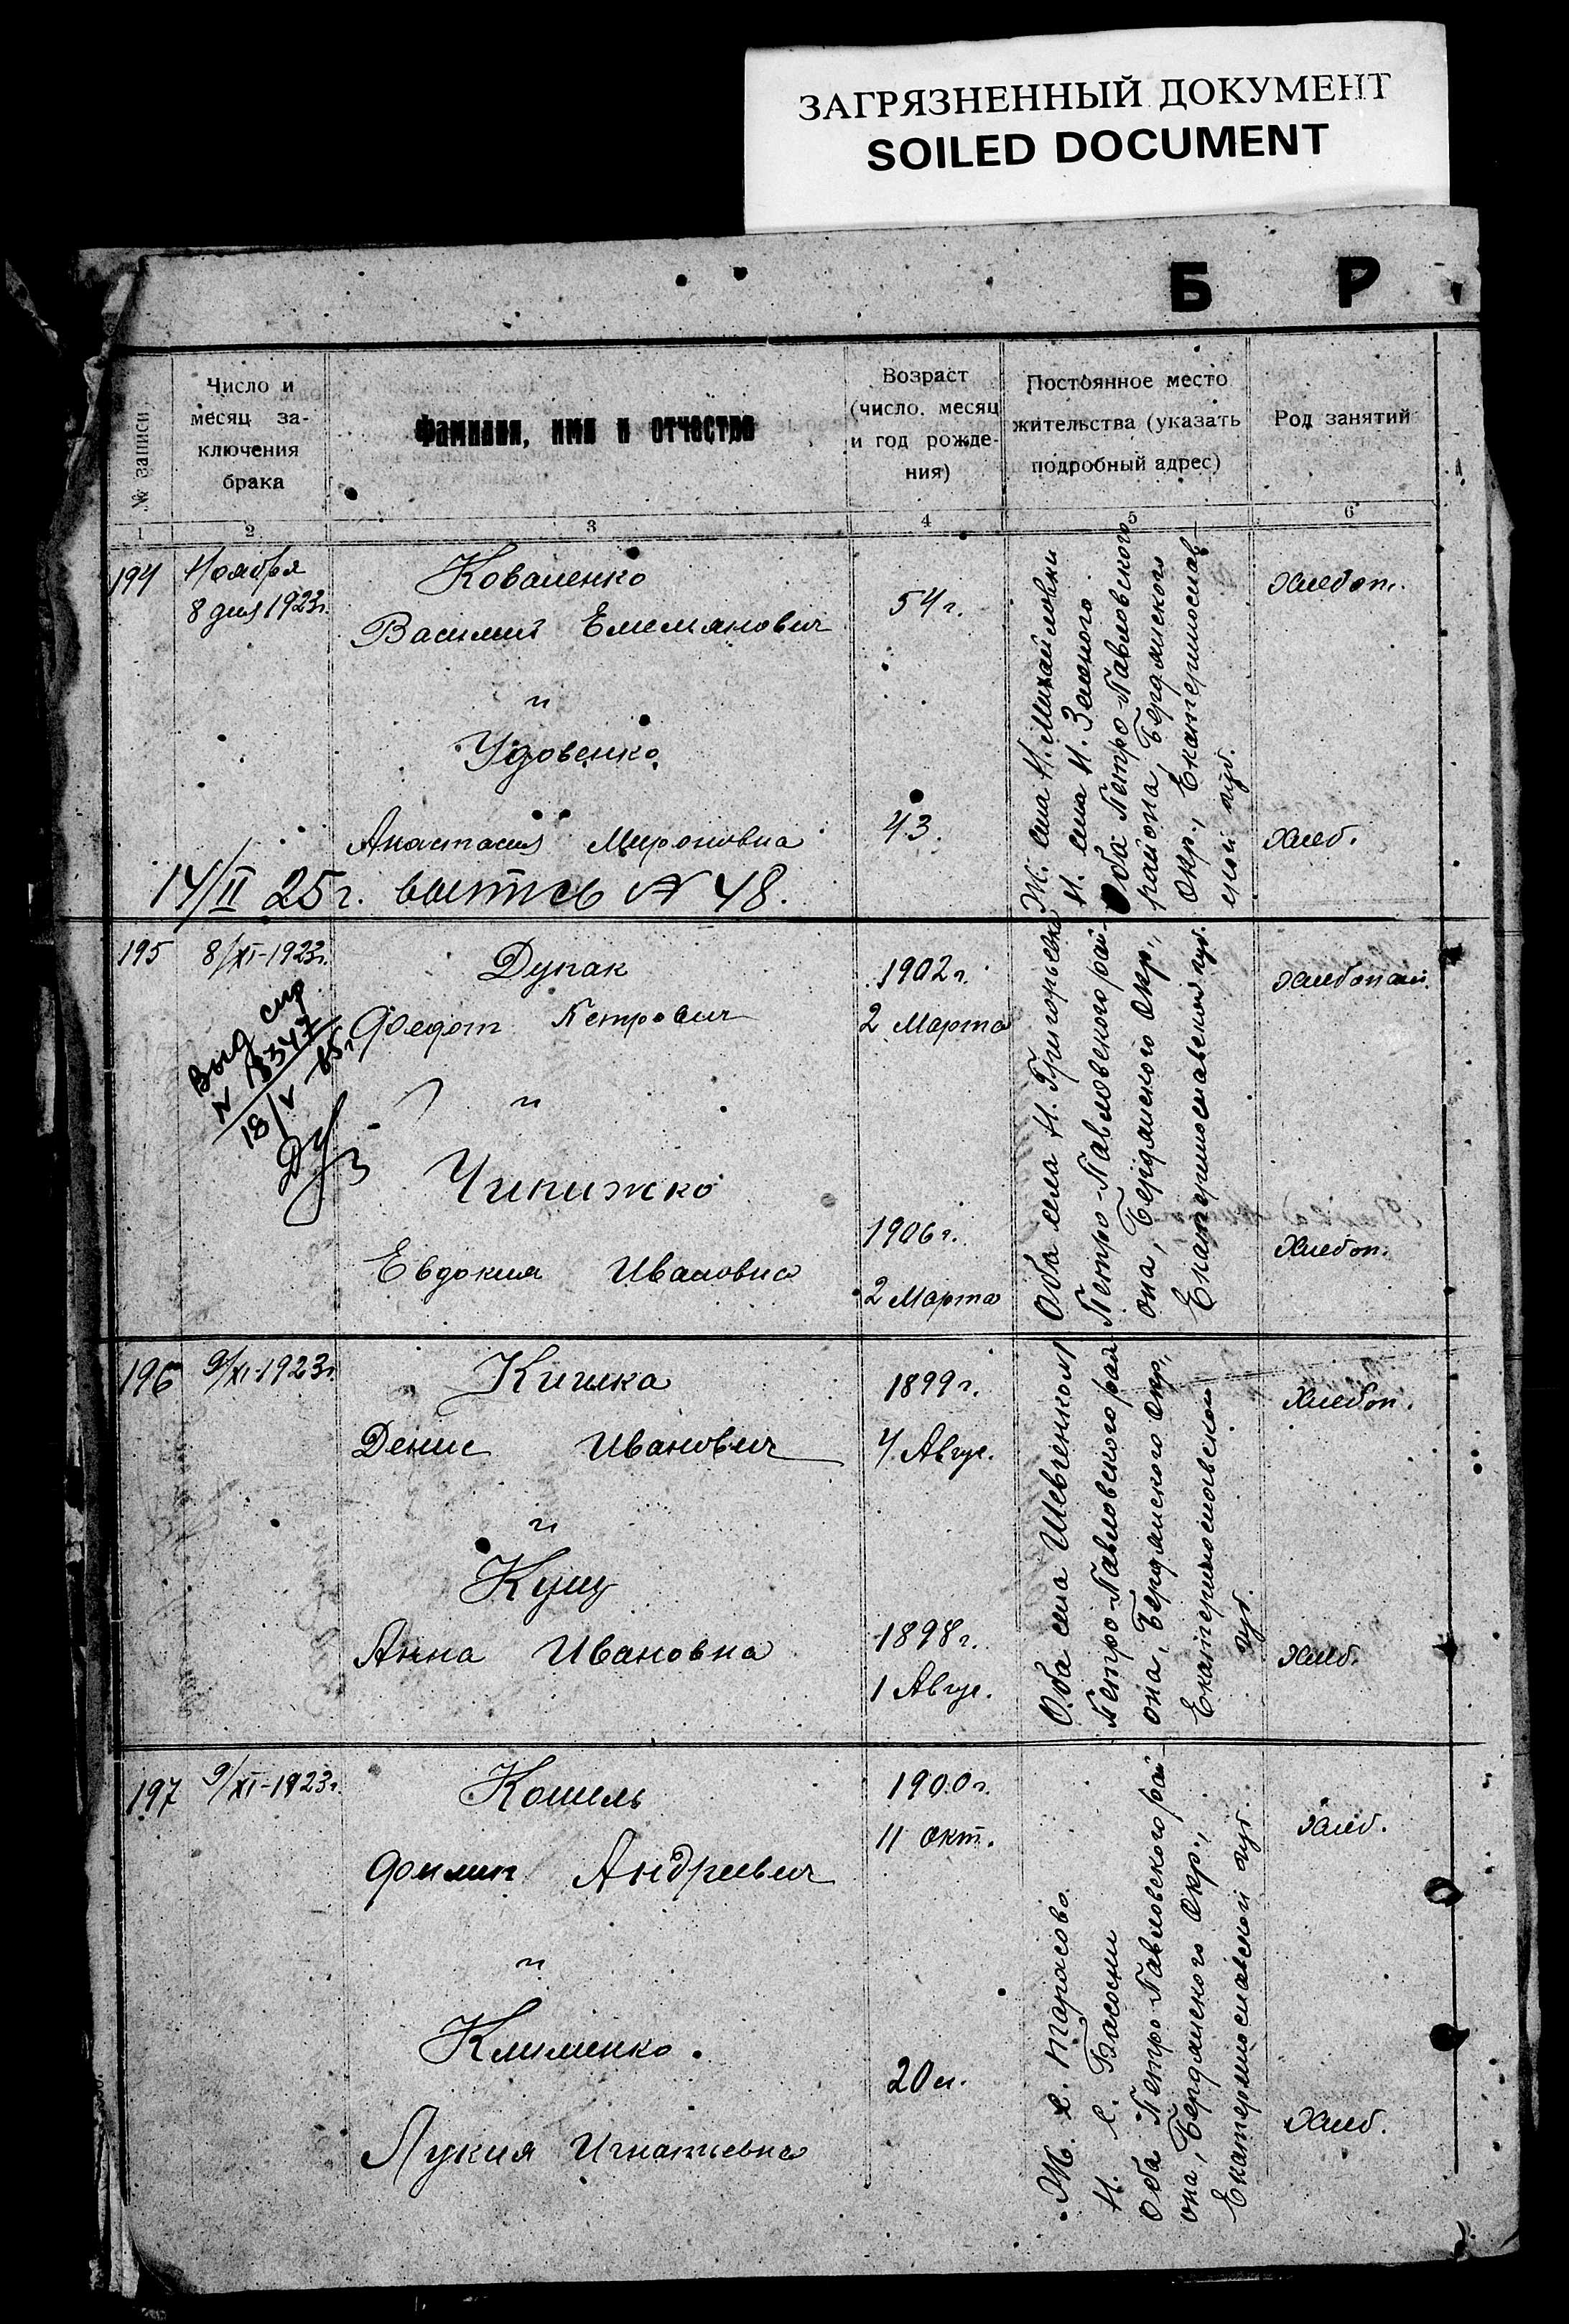 ЗАГРЯЗНЕННЫЙ ДОКУМЕНТ
SOILED DOCUMENT
Б Р
№ записи
Число и
месяц за-
ключения
брака
Фамилия, имя и отчество
Возраст
(число, месяц
и год рожде-
ния)
Постоянное место
жительства (указать
подробный адрес)
Род занятий
1 2 3 4 5 6
194
Ноября
8 дня 1923г.
Коваленко
Василий Емельянович
и
Удовенко
Анастасия Мироновна
54 г.
43.
Ж. села Н. Михайловки
Н. села Н. Зеленого
Оба Петро-Павловского
района, Бердянского
Окр., Екатеринослав-
ской губ.
Хлебоп.
Хлеб.
14/II 25г. выпись № 48.
195
8/XI-1923г.
Выд спр
N 18347
18/V
Дупак
Федот Петрович
и
Чипижко
Евдокия Ивановна
1902 г.
2 Марта
1906 г.
2 Марта
Оба села Н. Григорьевка
Петро-Павловского рай-
она, Бердянского Окр.,
Екатеринославской губ.
Хлебопаш.
Хлебоп.
196
9/XI-1923г.
Кишка
Денис Иванович
и
Кущ
Анна Ивановна
1899 г.
4 Авгус.
1898 г.
1 Авгус.
Оба села Шевченково
Петро-Павловского рай-
она, Бердянского Окр.,
Екатеринославской
губ.
Хлебоп.
Хлеб.
197
9/XI-1923г.
Кошель
Филип Андреевич
и
Клименко.
Лукия Игнатьевна
1900 г.
11 Окт.
20 л.
Ж. с. Тарасово
Н. с. Басань
Оба Петро-Павловского рай-
она, Бердянского Окр.,
Екатеринославской губ.
Хлеб.
Хлеб.